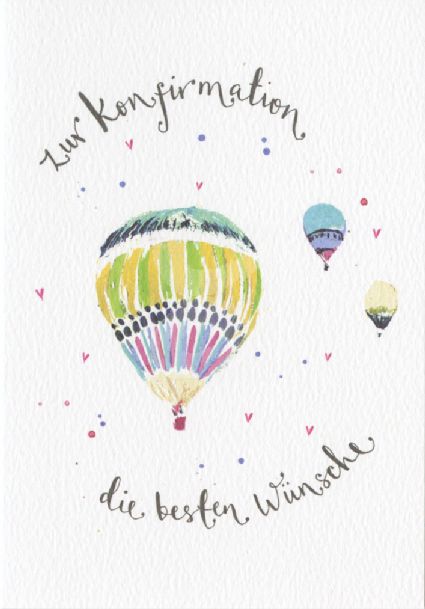 zur Konfirmation
die besten Wünsche